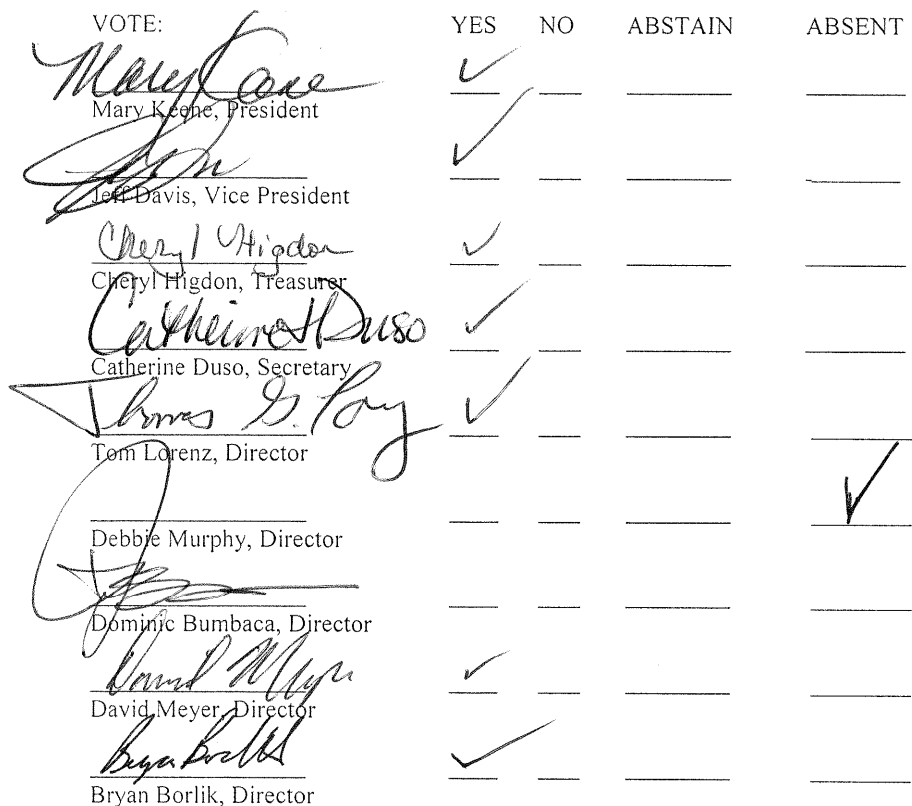 VOTE: YES NO ABSTAIN ABSENT
Mary
✓
Mary Keene, President
✓
Jeff Davis, Vice President
Cheryl Higdon ✓
Cheryl Higdon, Treasurer
Catherine Duso ✓
Catherine Duso, Secretary
Thomas G. ✓
Tom Lorenz, Director
✓
Debbie Murphy, Director
Dominic Bumbaca, Director
David Meyer ✓
David Meyer, Director
Bryan Borlik ✓
Bryan Borlik, Director